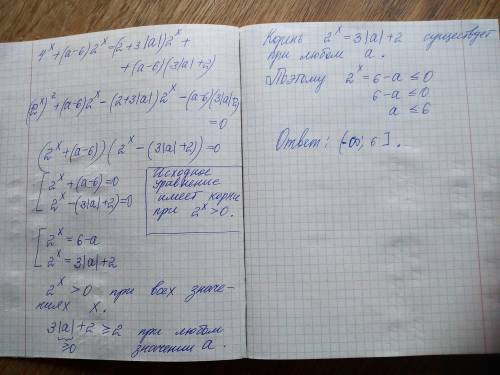 4^x+(a-6)2^x=(2+3|a|)2^x+
+(a-6)(3|a|+2)
(2^x)^2+(a-6)2^x-(2+3|a|)2^x-(a-6)(3|a|+2)
=0
(2^x+(a-6))(2^x-(3|a|+2))=0
[2^x+(a-6)=0
2^x-(3|a|+2)=0
Исходное
уравнение
имеет корни
при 2^x>0.
[2^x=6-a
2^x=3|a|+2
2^x>0 при всех значе-
ниях x.
3|a|+2≥2 при любом
≥0 значении a.
Корень 2^x=3|a|+2 существует
при любом a.
Поэтому 2^x=6-a≤0
6-a≤0
a≤6
Ответ: (-∞; 6].